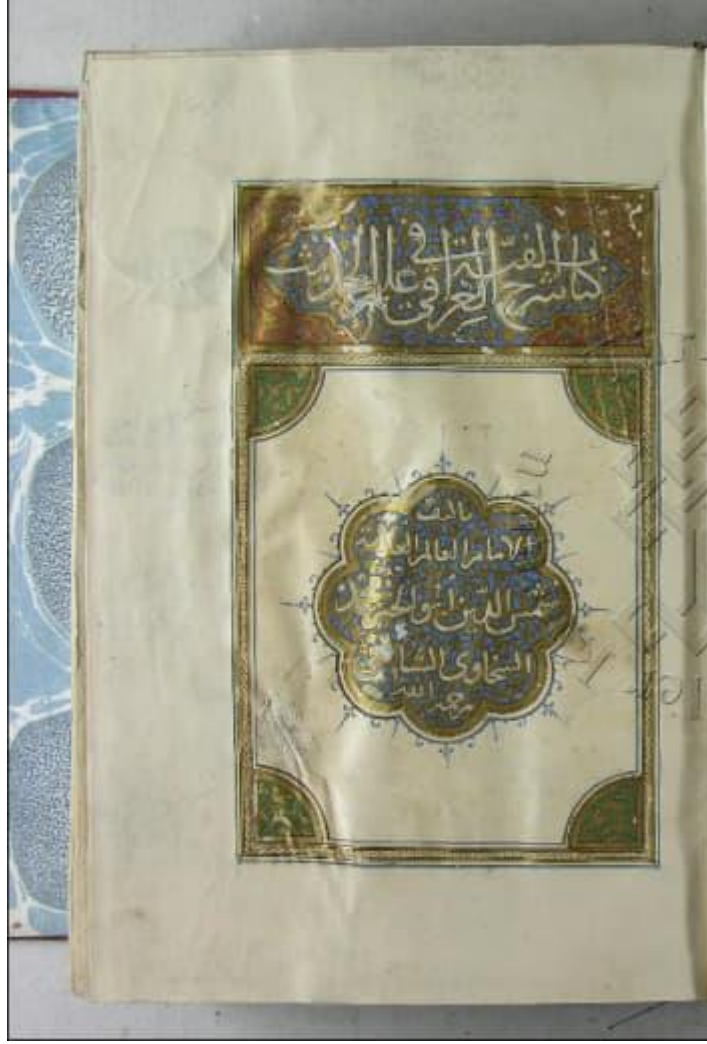 كتاب شرح الفية العراقي في علم الحديث
تاليف
الامام العالم العلامة
شمس الدين ابو الخير محمد
السخاوي الشافعي
رحمه الله